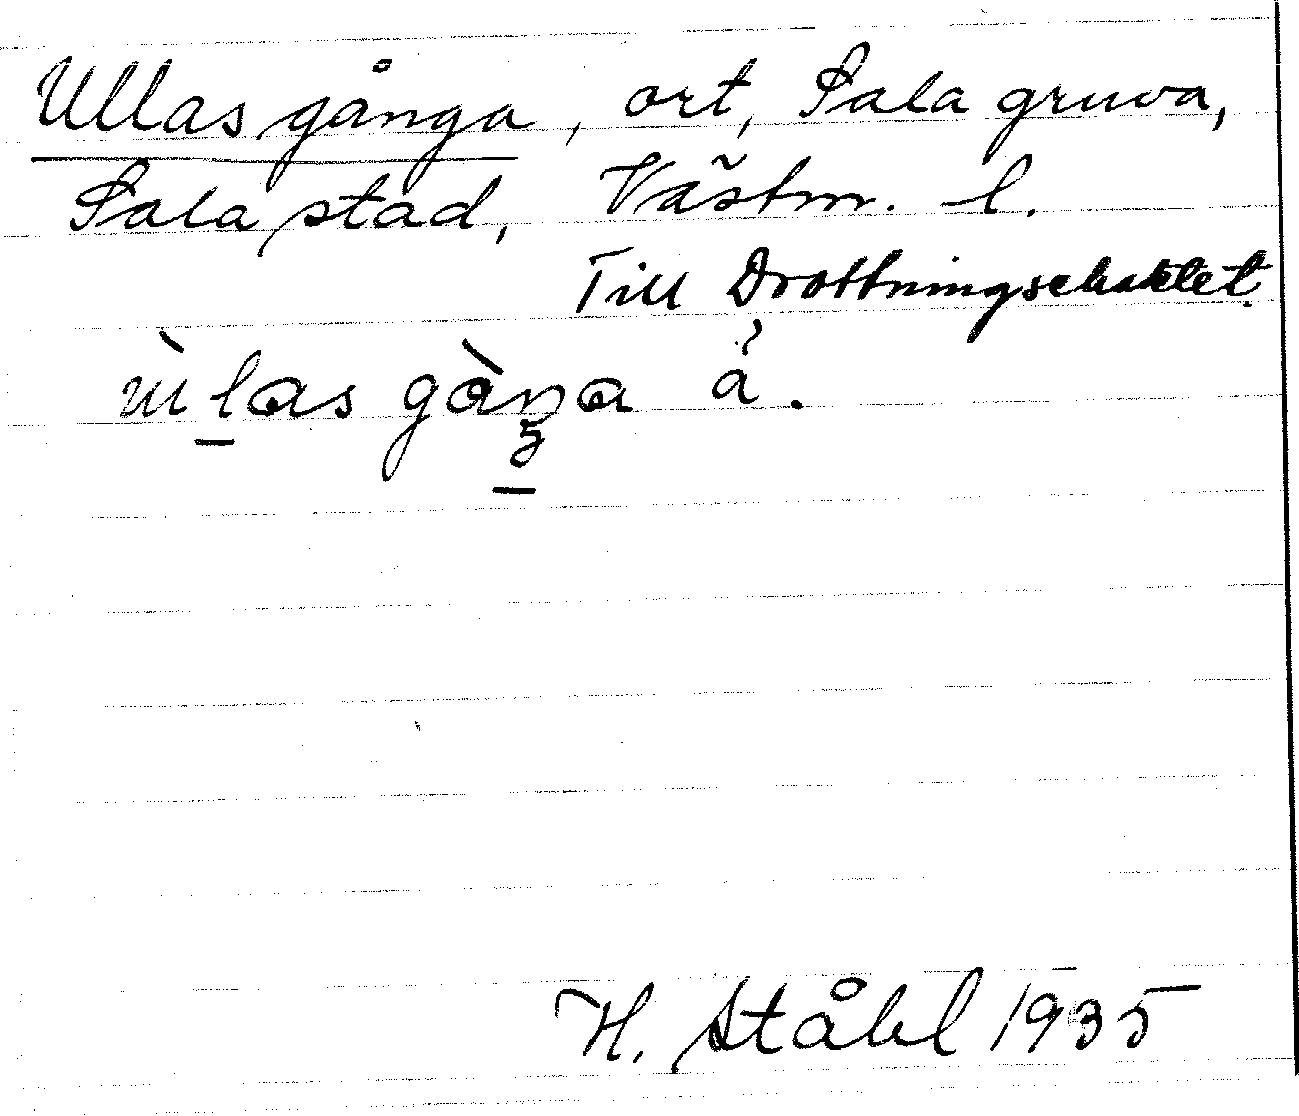 Ullas gånga, ort, Sala gruva,
Sala stad, Västm. l.
Till Drottningschaktet.
H. Ståhl 1935